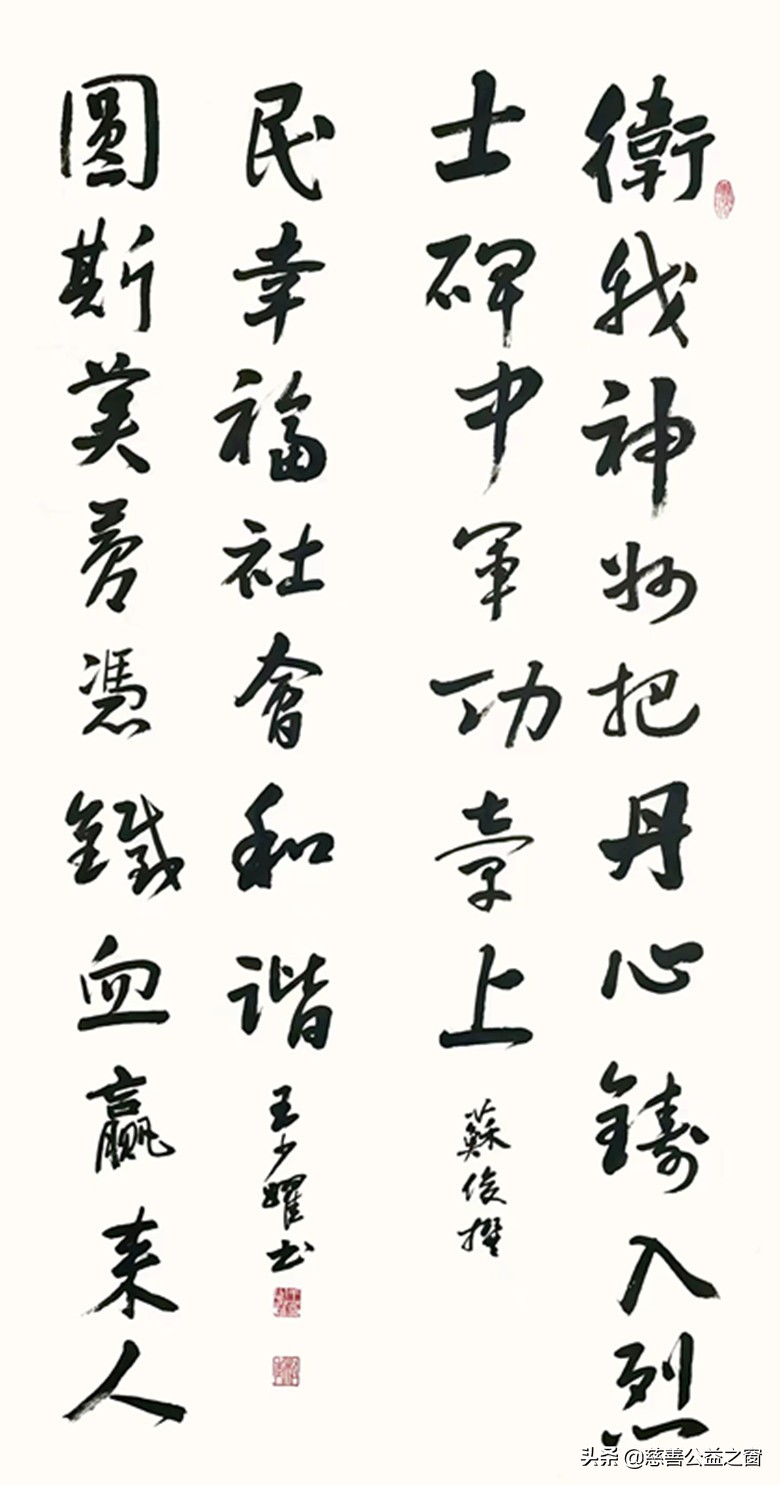 衛我神州把丹心鑄入烈
士碑中軍功章上
蘇俊撰
圓斯美夢憑鐵血贏来人
民幸福社會和谐
王少耀书
头条 @慈善公益之窗